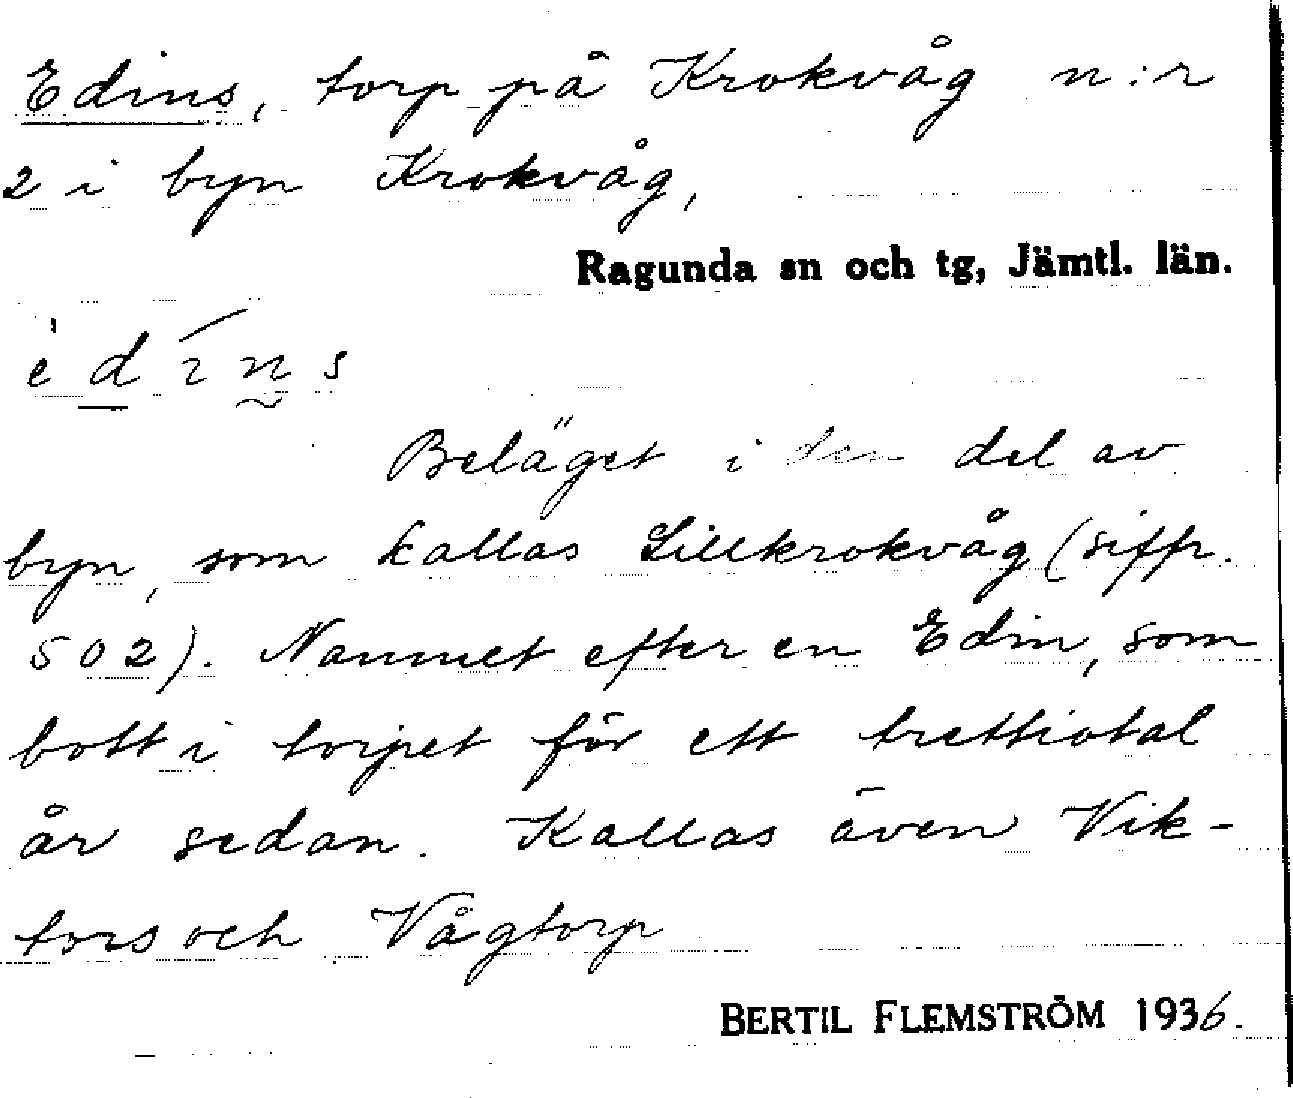 Edins, torp på Krokvåg n:r
2 i byn Krokvåg,
Ragunda sn och tg, Jämtl. län.
Beläget i den del av
byn, som kallas Lillkrokvåg (siffr.
502). Namnet efter en Edin, som
bott i torpet för ett trettiotal
år sedan. Kallas även Vik-
tors och Vågtorp
BERTIL FLEMSTRÖM 1936.